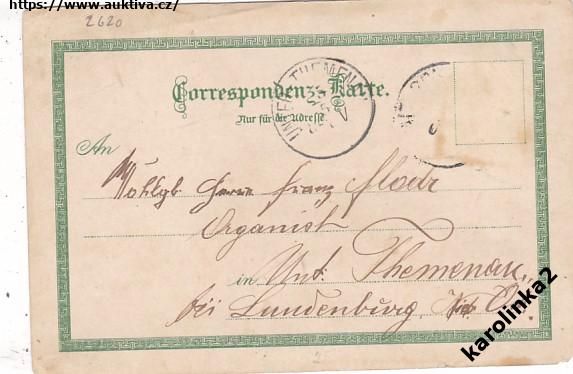 https://www.auktiva.cz/
2620
Correspondenz-Karte.
Nur für die Adresse.
UNTER THEMENAU
An
Wohlgb. Herrn Franz
Organist
in Unt. Themenau,
bei Lundenburg
karolinka2